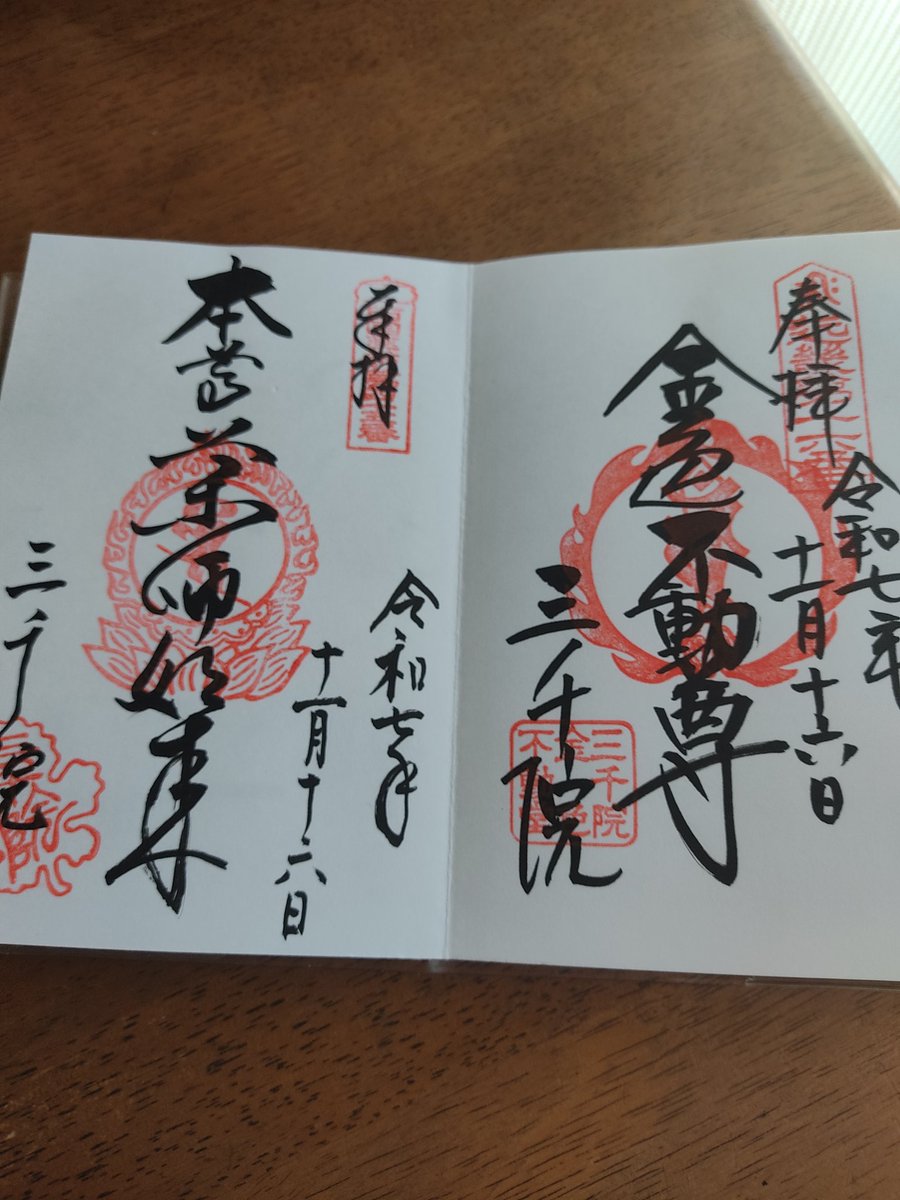 奉拝
令和七年
十一月十六日
金色不動尊
三千院
三千院
金色
不動堂
奉拝
令和七年
十一月十六日
本尊
薬師如来
三千院